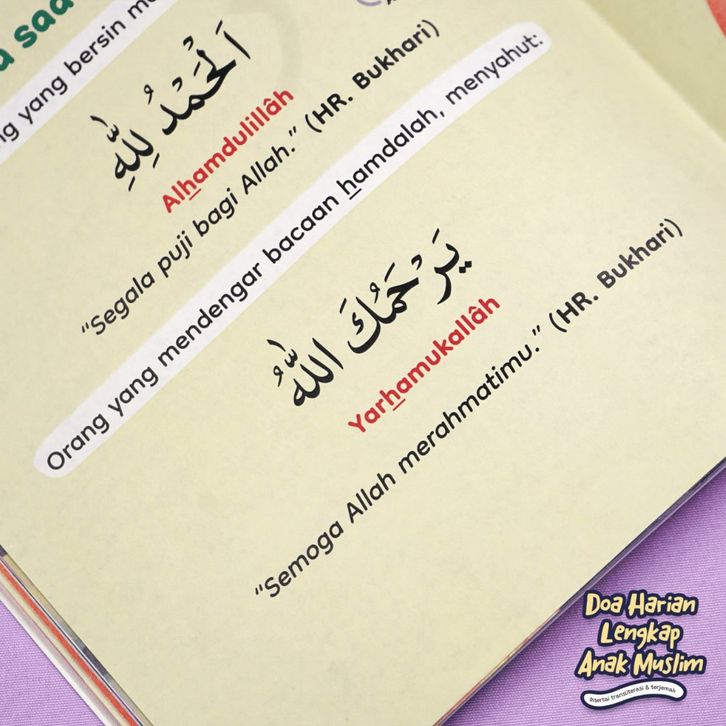 saa
yang bersin
اَلْحَمْدُ لِلّٰهِ
Alhamdulillâh
“Segala puji bagi Allah.” (HR. Bukhari)
Orang yang mendengar bacaan hamdalah, menyahut:
يَرْحَمُكَ اللّٰهُ
Yarhamukallâh
“Semoga Allah merahmatimu.” (HR. Bukhari)
Doa Harian
Lengkap
Anak Muslim
Disertai transliterasi & terjemah